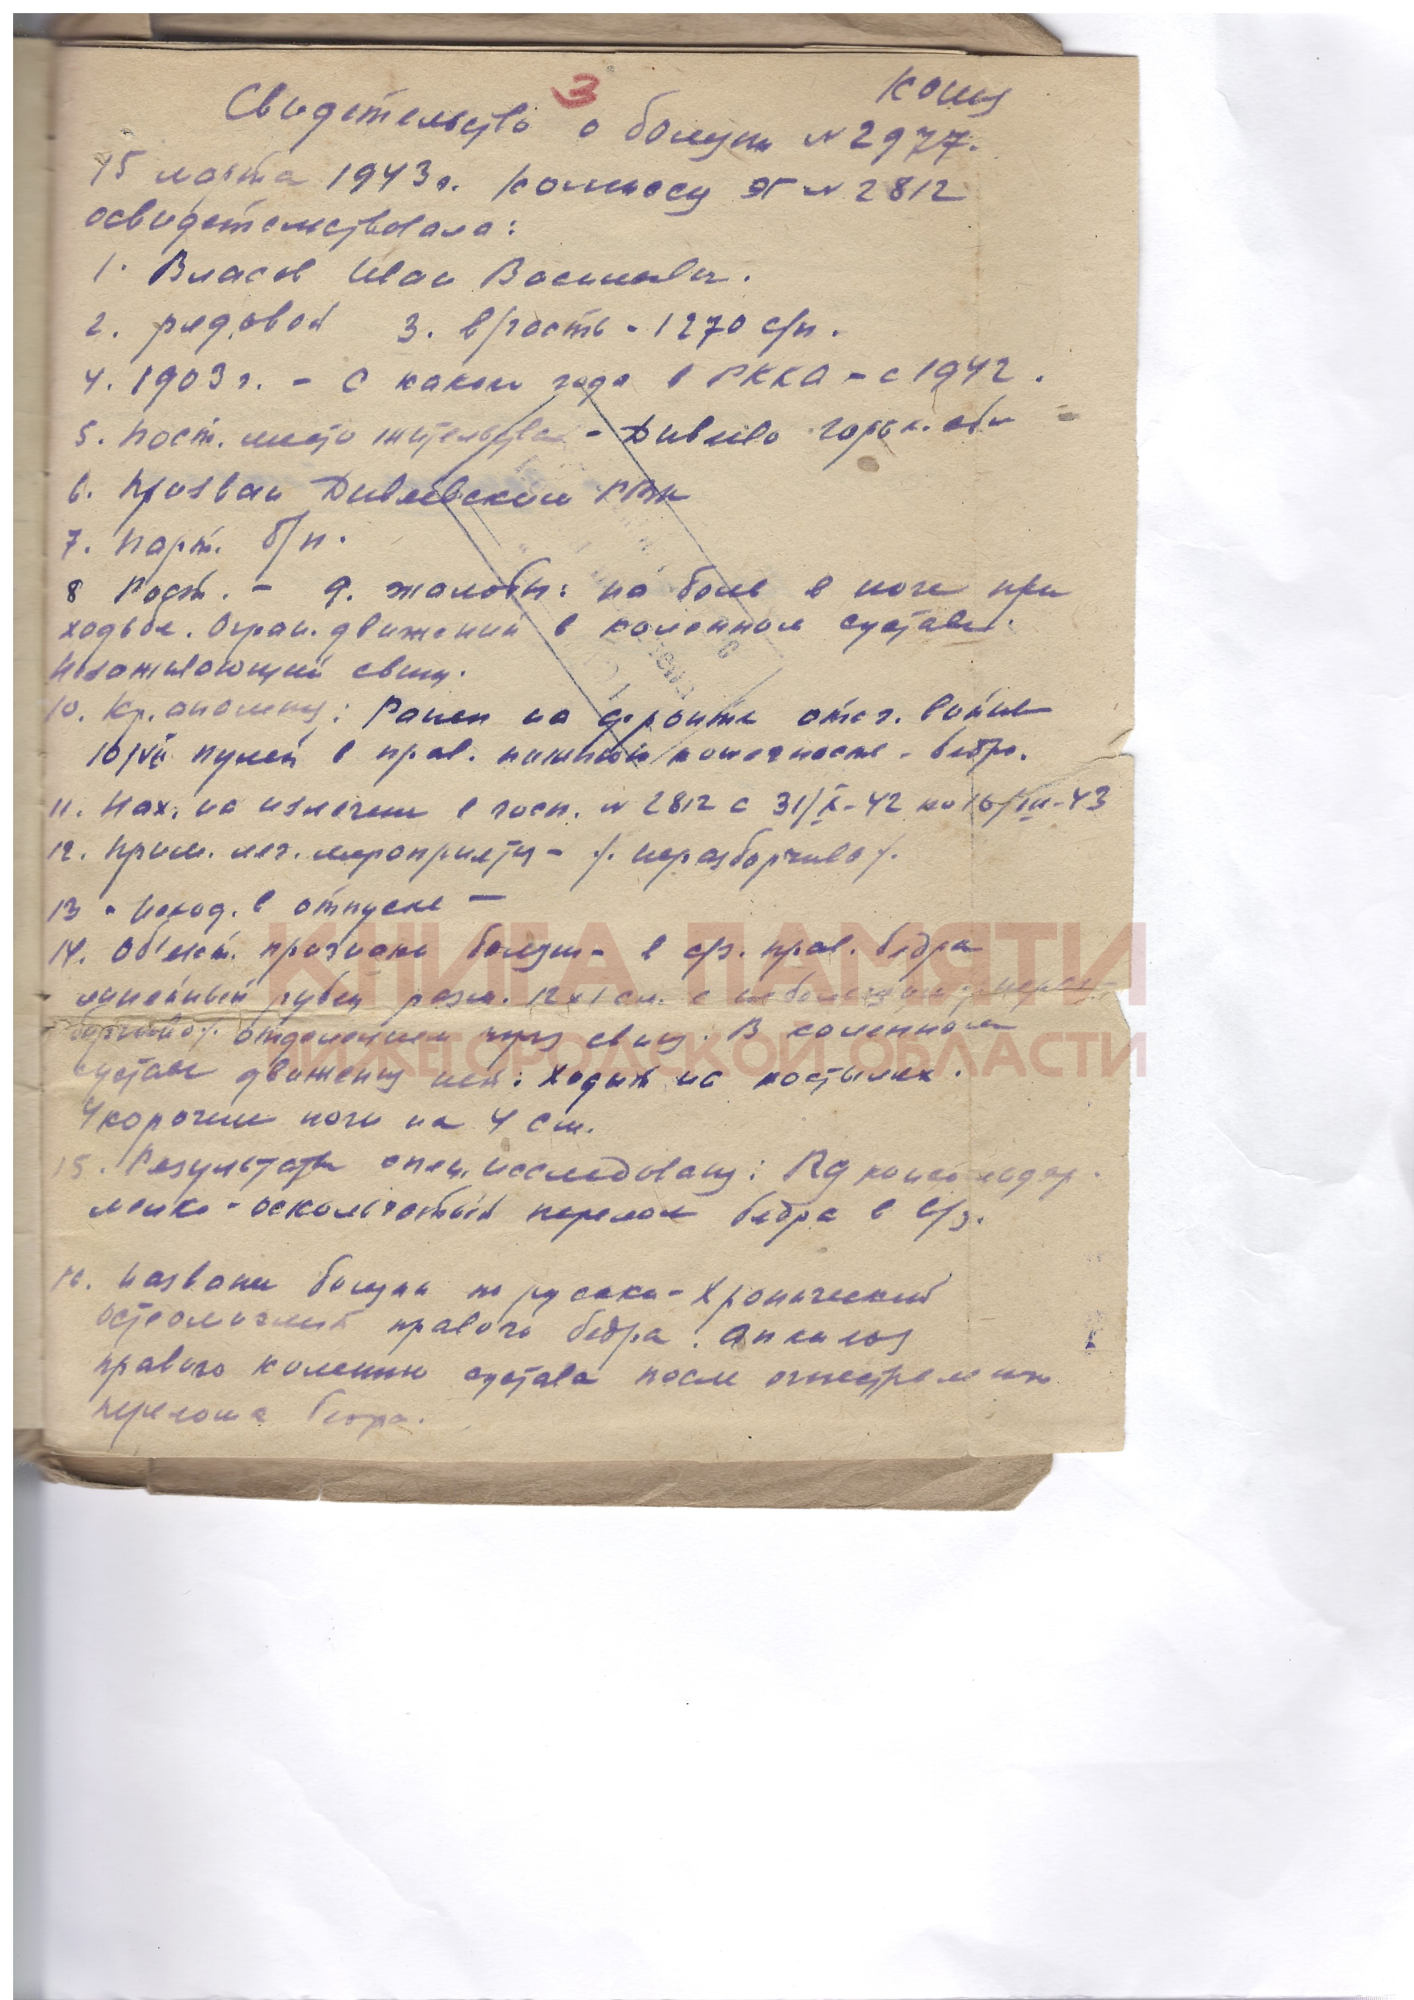 3
Копия
Свидетельство о болезни № 2977.
15 марта 1943 г. Комиссия ЭГ № 2812
освидетельствовала:
1. Власов Иван Васильевич.
2. рядовой 3. в/часть - 1270 с/п.
4. 1903 г. - С какого года в РККА - с 1942.
5. Пост. место жительства - Дивеево Горьк. обл
6. Призван Дивеевским РВК
7. Парт. б/п.
8 Рост. - 9. жалобы: на боль в ноге при
ходьбе. Огран. движений в коленном суставе.
Незаживающий свищ.
10. Кр. анамнез: Ранен на фронте отеч. войны
10/VII пулей в прав. нижнюю конечность - бедро.
11. Нах. на излечении в госп. № 2812 с 31/X-42 по 16/III-43
12. Прим. леч. мероприятия - /. неразборчиво /.
13. Наход. в отпуске —
14. Объект. признаки болезни - в с/з. прав. бедра
линейный рубец разм. 12 х 1 см. с небольшим /. нераз-
борчиво /. отделением через свищ. В коленном
суставе движений нет. Ходит на костылях.
Укорочение ноги на 4 см.
15. Результаты спец. исследования: Rg
мелко-оскольчатый перелом бедра в с/з.
16. Название болезни по русски - Хронический
остеомиелит правого бедра. Анкилоз
правого коленного сустава после огнестрельного
перелома бедра.
КНИГА ПАМЯТИ
НИЖЕГОРОДСКОЙ ОБЛАСТИ